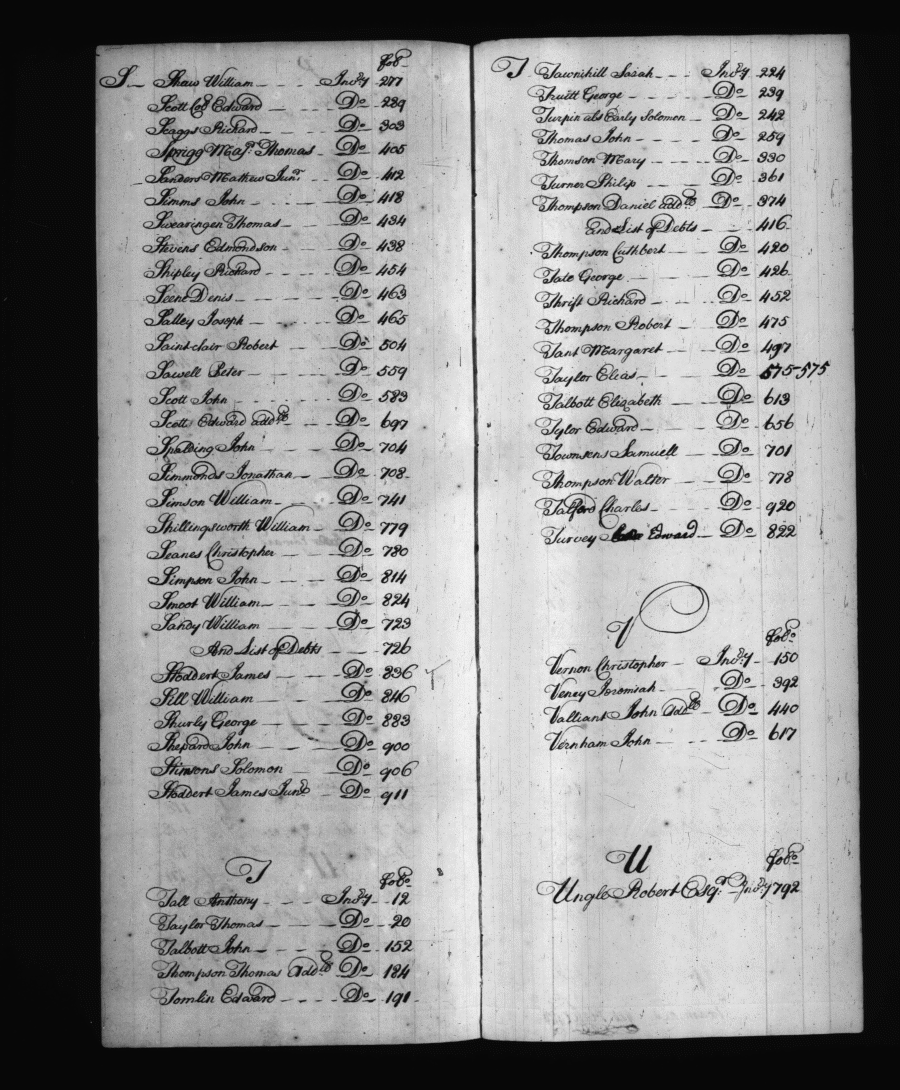 folo
S Shaw William Indry 277
Scott Col Edward Do 289
Scaggs Richard Do 303
Sprigg Majr. Thomas Do 405
Sanders Mathew Junr. Do 412
Simms John Do 418
Swearingen Thomas Do 434
Stevens Edmondson Do 438
Shipley Richard Do 454
Denis Do 463
Salley Joseph Do 465
Saint clair Robert Do 504
Sawell Peter Do 559
Scott John Do 583
Scott Edward addl Do 697
Spalding John Do 704
Simmonds Jonathan Do 708
Simson William Do 741
Shillingsworth William Do 779
Seanes Christopher Do 780
Simpson John Do 814
Smoot William Do 824
Sandy William Do 723
And List of Debts 726
Stoddert James Do 836
Sill William Do 846
Shurly George Do 883
Shepard John Do 900
Stimsons Solomon Do 906
Stoddert James Junr Do 911
T
folo
Tall Anthony Indry 12
Taylor Thomas Do 20
Talbott John Do 152
Thompson Thomas addl Do 184
Tomlin Edward Do 191
T Tawnihill Sarah Indry 224
Truitt George Do 239
Turpin als Early Solomon Do 242
Thomas John Do 259
Thomson Mary Do 330
Turner Philip Do 361
Thompson Daniel addl Do 374
and List of Debts 416
Thompson Cuthbert Do 420
Tate George Do 426
Thrift Richard Do 452
Thompson Robert Do 475
Tant Margaret Do 497
Taylor Elias Do 575-575
Talbott Elizabeth Do 613
Tylor Edward Do 656
Townsens Samuell Do 701
Thompson Walter Do 778
Talford Charles Do 920
Turvey Edward Do 822
V
folo
Vernon Christopher Indry 150
Veney Jeremiah Do 392
Valliant John addl Do 440
Vernham John Do 617
U folo
Ungle Robert Esqr. Indry 792